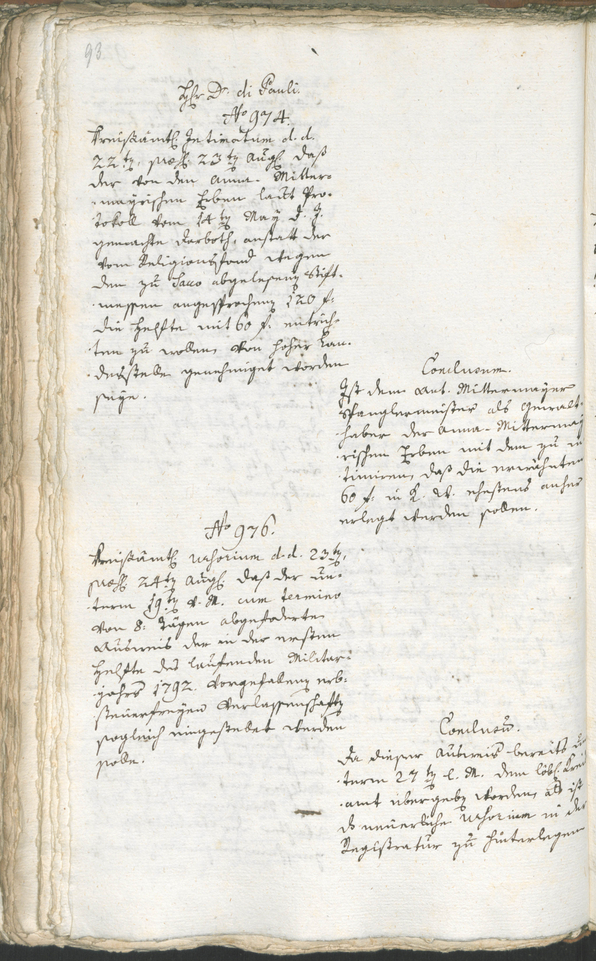 93
Hr. Dr. di Pauli.
No 974.
Kreisämtl. Intimatum d. d.
22ten, praes. 23ten Aug. daß
der von den Anna-Mitter-
mayrischen Erben laut Pro-
tokoll vom 14ten May d. J.
gemachte Anboth, anstatt der
vom Religionsfond wegen
den zu abgelesenen Stift-
messen angesprochenen 120 f:
die Helfte mit 60 f. entrich-
ten zu wollen, von hoher Lan-
desstelle genehmiget worden
seye.
Conclusum.
Ist dem Ant. Mittermayer
Spanglermeister als Gewalt-
haber der Anna-Mittermay
rischen Erben mit dem zu in
timiren, daß die erwähnten
60 f: in K. W. ehestens anher
erlegt werden sollen.
No 976.
Kreisämtl. Urhorium d. d. 23ten,
praes. 24ten Aug. daß der un-
term 19ten v. M. cum termino
von 8. Tägen abgeforderte
Ausweis der in der ersten
Helfte des laufenden Militar-
jahrs 1792. vorgefallenen erb-
steuerfreyen Verlassenschaften
sogleich eingesendet werden
solle.
Conclusum.
Da dieser Ausweis bereits un
term 27ten l. M. dem löbl. Kreis
amt übergeben worden, als ist
das neuerliche Urhorium in der
Registratur zu hinterlegen